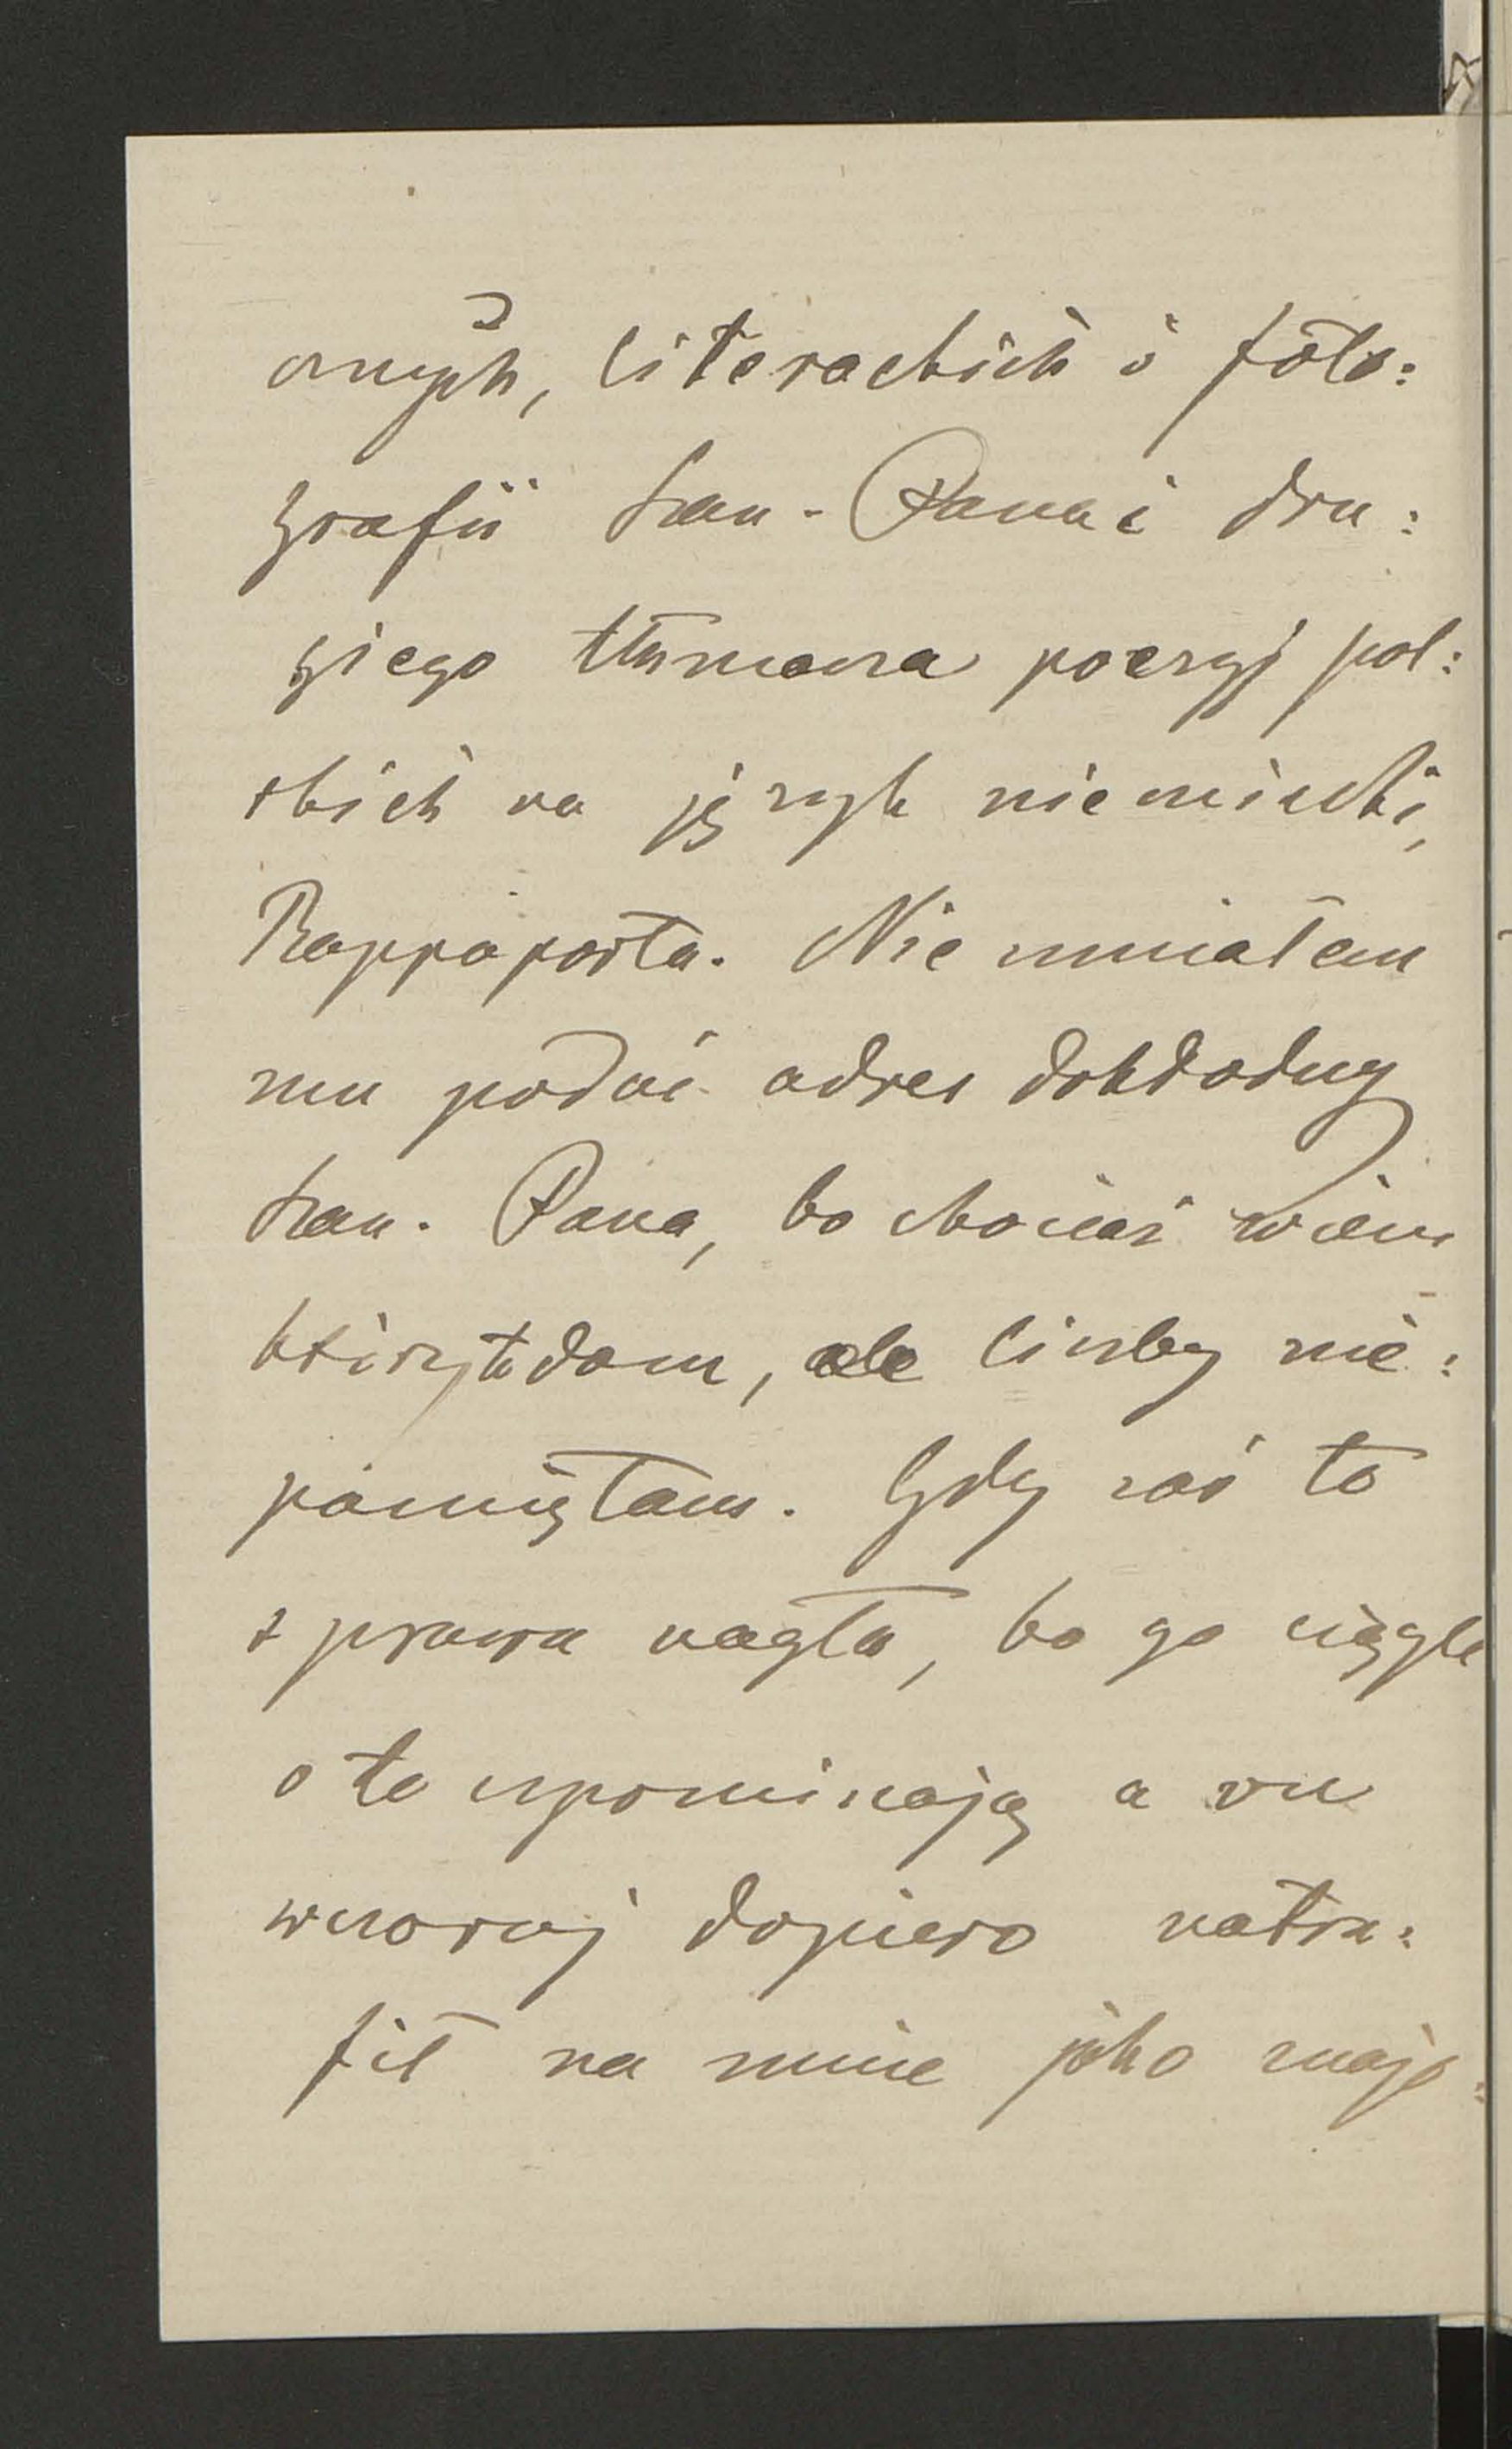 cznych, literackich i foto:
grafii Szan. Pana i dru:
giego tłómacza poezyj pol:
skich na język niemiecki,
Rappaporta. Nie umiałem
mu podać adres dokładny
Szan. Pana, bo chociaż wiem
któryto dom, ale liczby nie:
pamiętam. Gdy zaś to
sprawa nagła, bo go ciągle
o to upominają a on
wczoraj dopiero natra:
fił na mnie jako znajo: